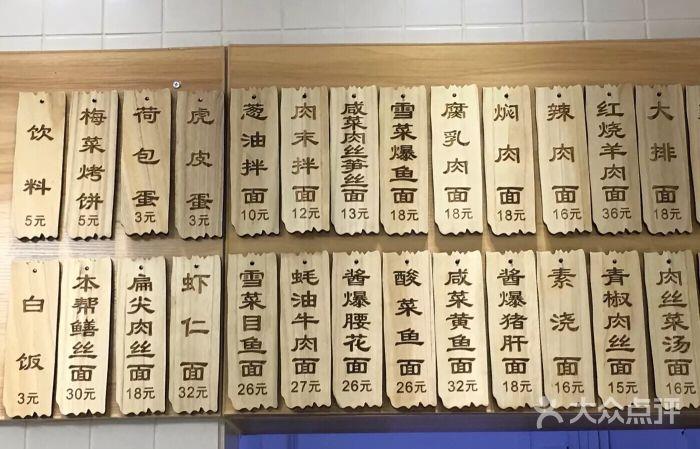 饮料 5元
梅菜烤饼 5元
荷包蛋 3元
虎皮蛋 3元
葱油拌面 10元
肉末拌面 12元
咸菜肉丝笋丝面 13元
雪菜爆鱼面 18元
腐乳肉面 18元
焖肉面 18元
辣肉面 16元
红烧羊肉面 36元
大排面 18元
白饭 3元
本帮鳝丝面 30元
扁尖肉丝面 18元
虾仁面 32元
雪菜目鱼面 26元
蚝油牛肉面 27元
酱爆腰花面 26元
酸菜鱼面 26元
咸菜黄鱼面 32元
酱爆猪肝面 18元
素浇面 16元
青椒肉丝面 15元
肉丝菜汤面 16元
大众点评